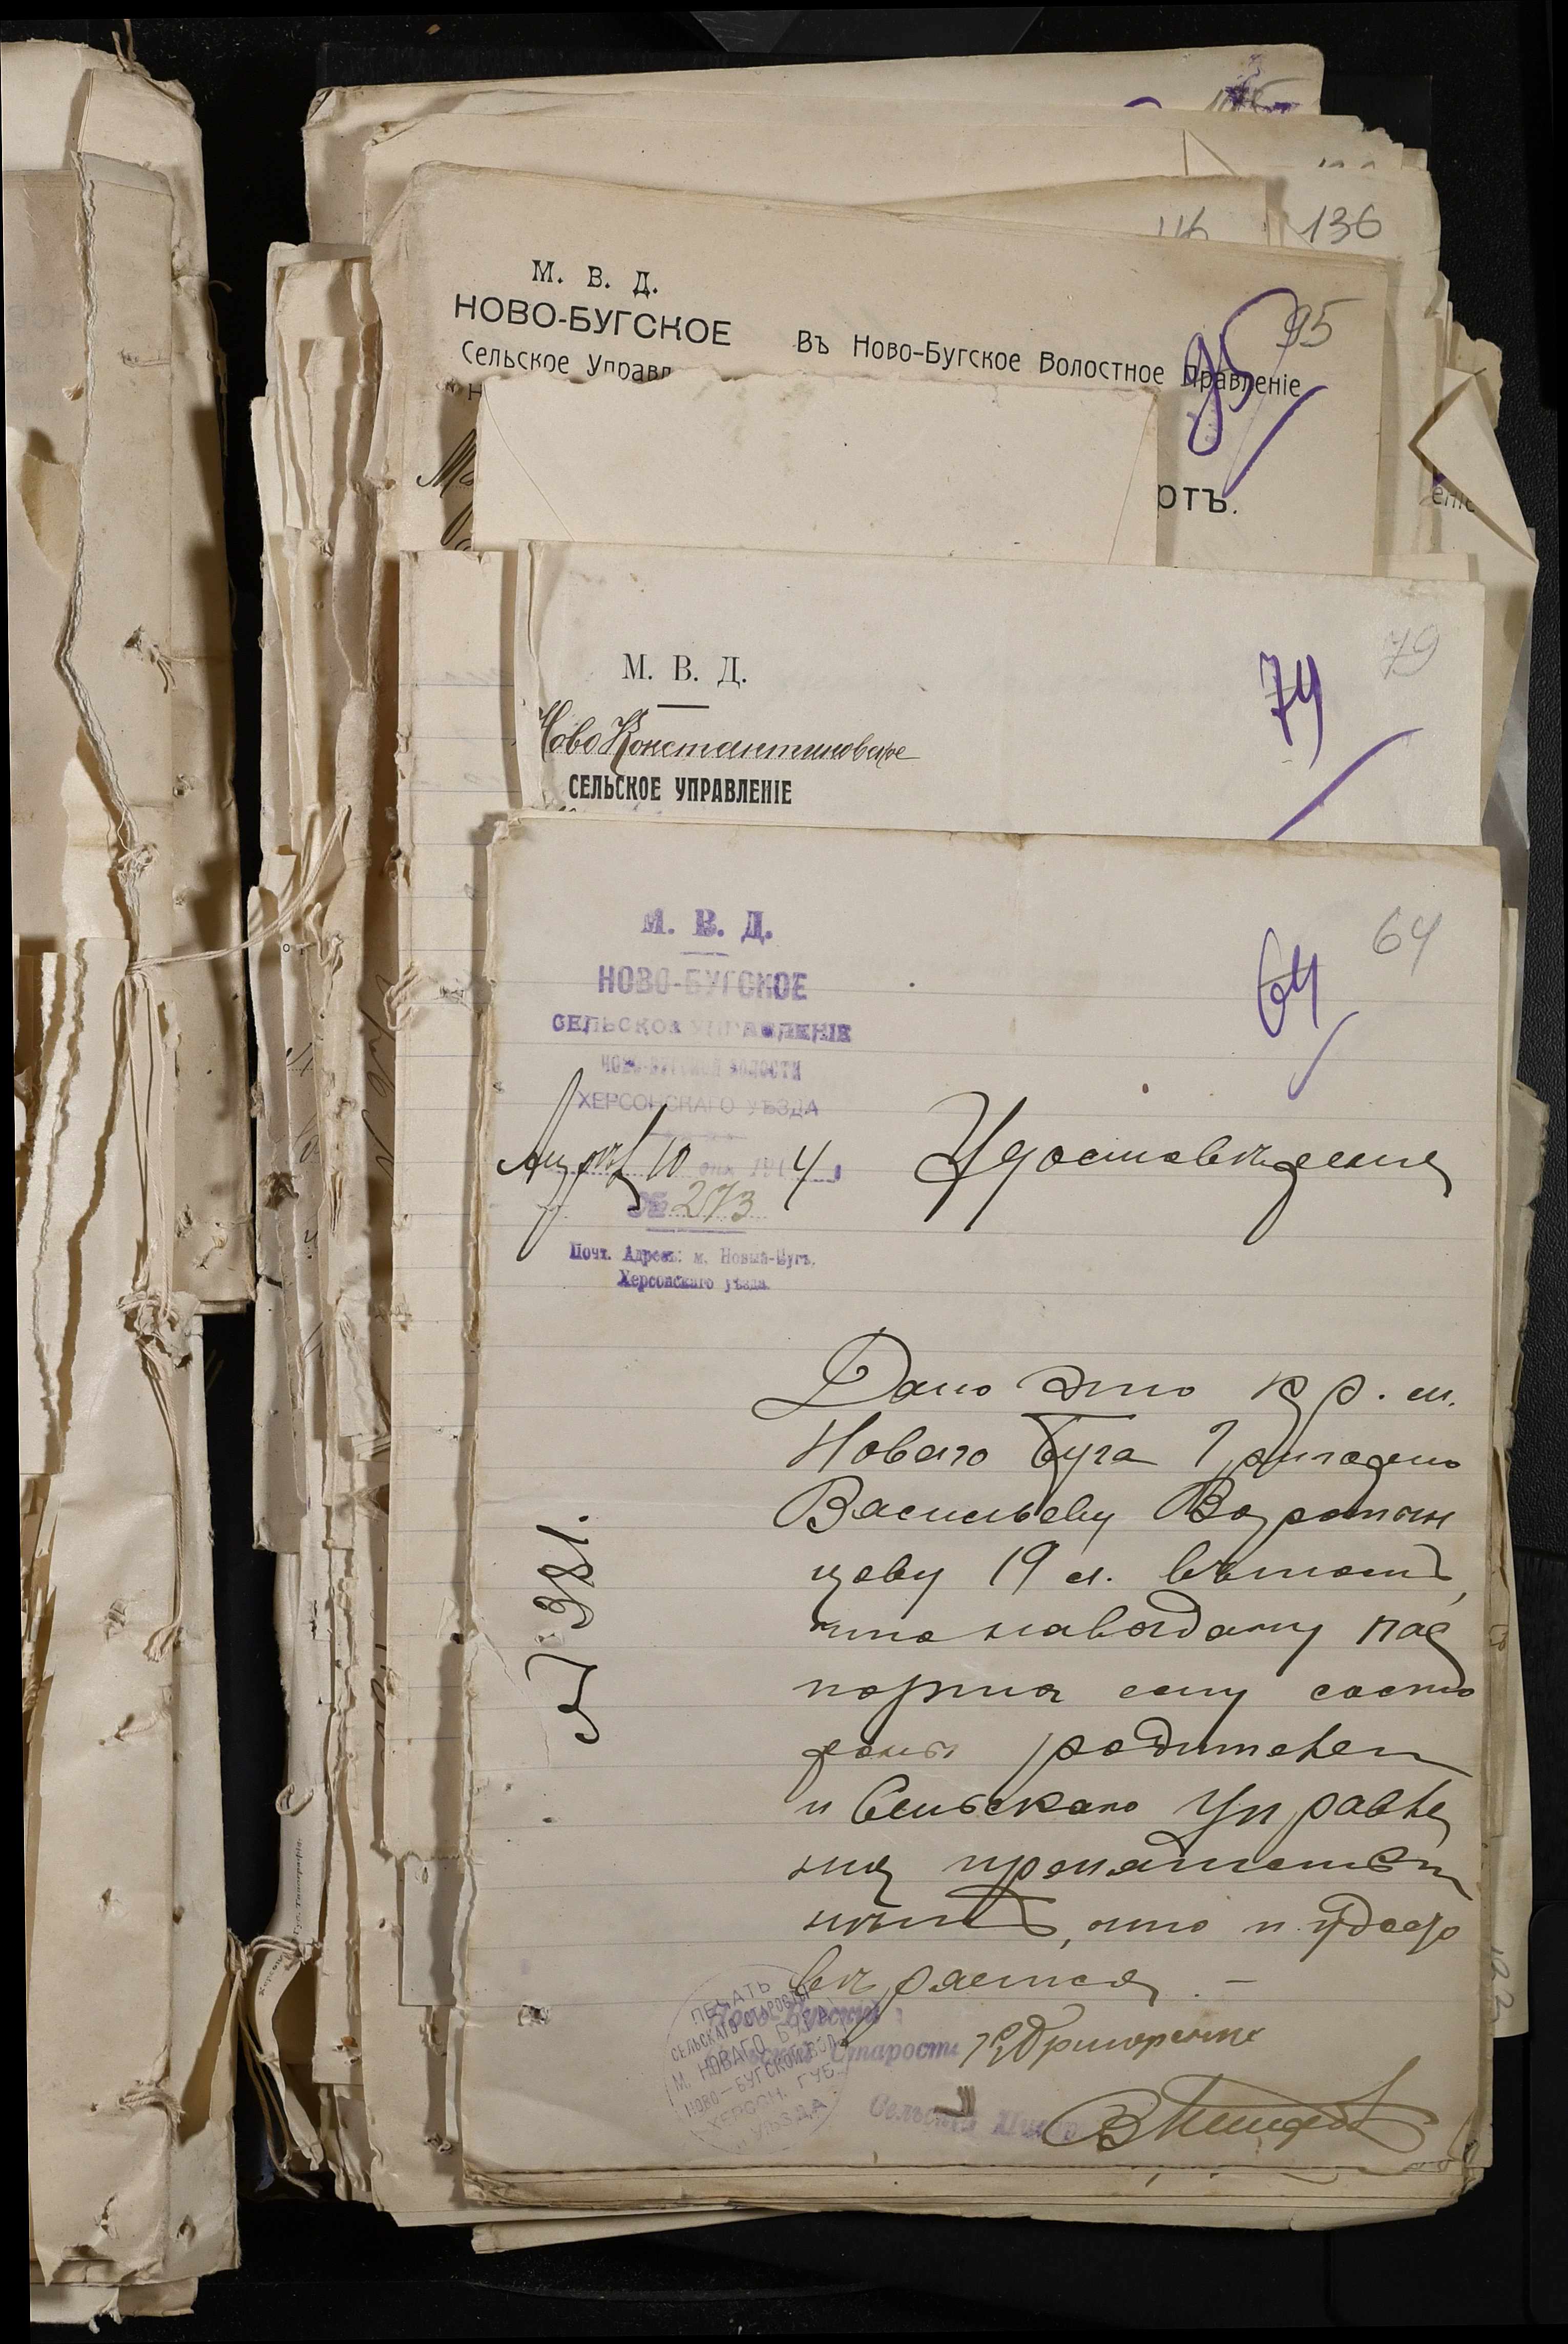 136
М. В. Д.
НОВО-БУГСКОЕ
Сельское Управл
Въ Ново-Бугское Волостное Правленіе
95
95
ртъ.
М. В. Д.
Ново Константиновское
СЕЛЬСКОЕ УПРАВЛЕНІЕ
79
79
М. В. Д.
НОВО-БУГСКОЕ
СЕЛЬСКОЕ УПРАВЛЕНІЕ
НОВО-БУГСКОЙ ВОЛОСТИ
ХЕРСОНСКАГО УѢЗДА
10 дня 1914
№ 273
Почт. Адресъ: м. Новый-Бугъ,
Херсонскаго уѣзда.
64
64
Удостовѣреніе
Дано это кр. м.
Новаго Буга Григорію
Васильеву Воротын
цеву 19 л. въ томъ,
что на выдачу пас
порта ему со сто
роны родителей
и Сельскаго Управле
нія препятствій
нѣтъ, что и удосто
вѣряется. –
381.
ПЕЧАТЬ
СЕЛЬСКАГО СТАРОСТЫ
М. НОВАГО БУГА
НОВО-БУГСКОЙ ВОЛ.
ХЕРСОН. ГУБ.
И УѢЗДА
Ново-Бугскій
Староста
Сельскій Писарь